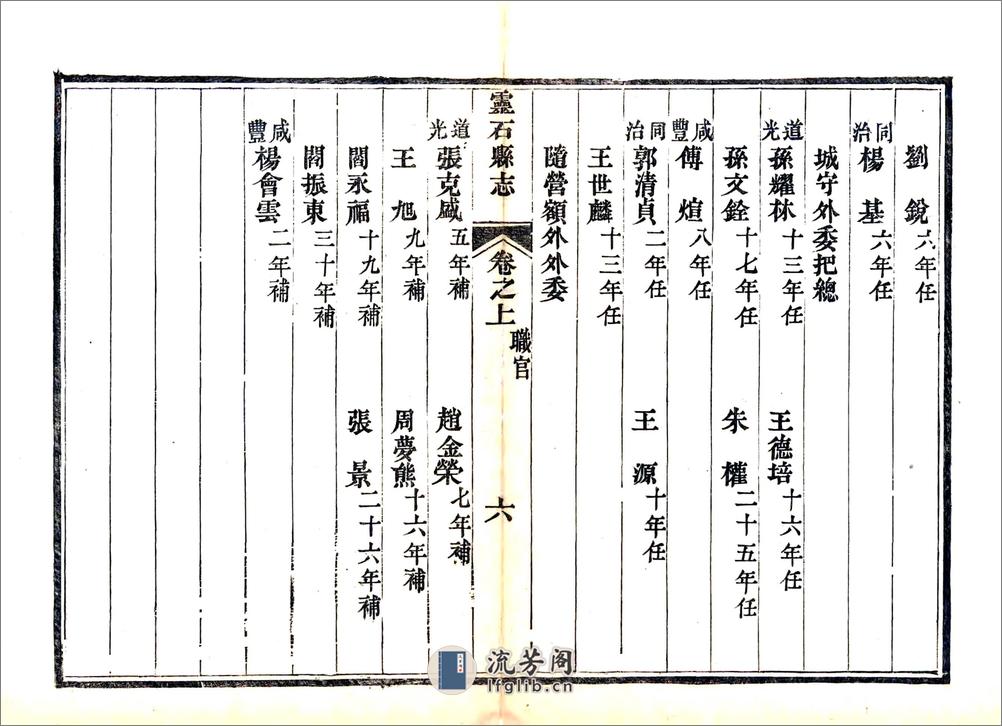 劉銳六年任
同治楊基六年任
城守外委把總
道光孫耀林十三年任 王德培十六年任
孫文銓十七年任 朱權二十五年任
咸豐傅煊八年任
同治郭清貞二年任 王源十年任
王世麟十三年任
隨營額外外委
靈石縣志 卷之上 職官 六
道光張克咸五年補 趙金榮七年補
王旭九年補 周夢熊十六年補
閻永福十九年補 張景二十六年補
閻振東三十年補
咸豐楊會雲二年補
流芳阁
lfglib.cn